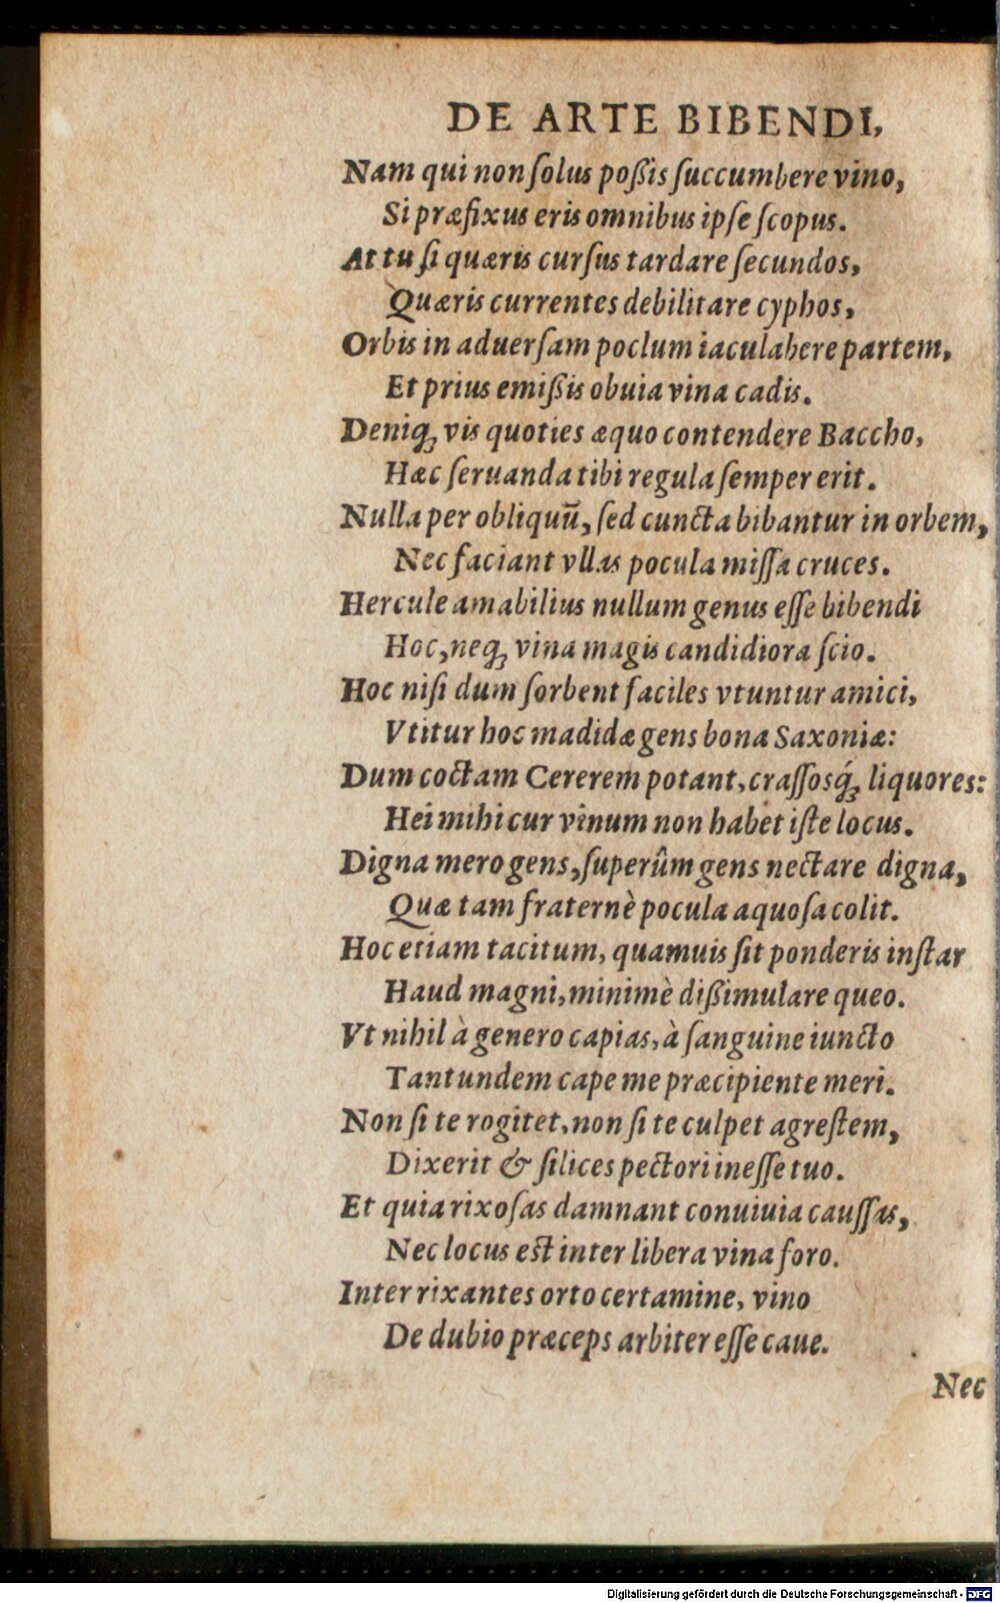 DE ARTE BIBENDI,
Nam qui non ſolus poßis ſuccumbere vino,
Si præfixus eris omnibus ipſe ſcopus.
At tu ſi quæris curſus tardare ſecundos,
Quæris currentes debilitare cyphos,
Orbis in aduerſam poclum iaculabere partem,
Et prius emißis obuia vina cadis.
Deniqꝫ vis quoties æquo contendere Baccho,
Hæc ſeruanda tibi regula ſemper erit.
Nulla per obliquū, ſed cuncta bibantur in orbem,
Nec faciant vllas pocula miſſa cruces.
Hercule amabilius nullum genus eſſe bibendi
Hoc, neqꝫ vina magis candidiora ſcio.
Hoc niſi dum ſorbent faciles vtuntur amici,
Vtitur hoc madidæ gens bona Saxoniæ:
Dum coctam Cererem potant, craſſosq́ꝫ liquores:
Hei mihi cur vinum non habet iſte locus.
Digna mero gens, ſuperûm gens nectare digna,
Quæ tam fraternè pocula aquoſa colit.
Hoc etiam tacitum, quamuis ſit ponderis inſtar
Haud magni, minimè dißimulare queo.
Vt nihil à genero capias, à ſanguine iuncto
Tantundem cape me præcipiente meri.
Non ſi te rogitet, non ſi te culpet agreſtem,
Dixerit & ſilices pectori ineſſe tuo.
Et quia rixoſas damnant conuiuia cauſſas,
Nec locus eſt inter libera vina foro.
Inter rixantes orto certamine, vino
De dubio præceps arbiter eſſe caue.
Nec
Digitalisierung gefördert durch die Deutsche Forschungsgemeinschaft - DFG